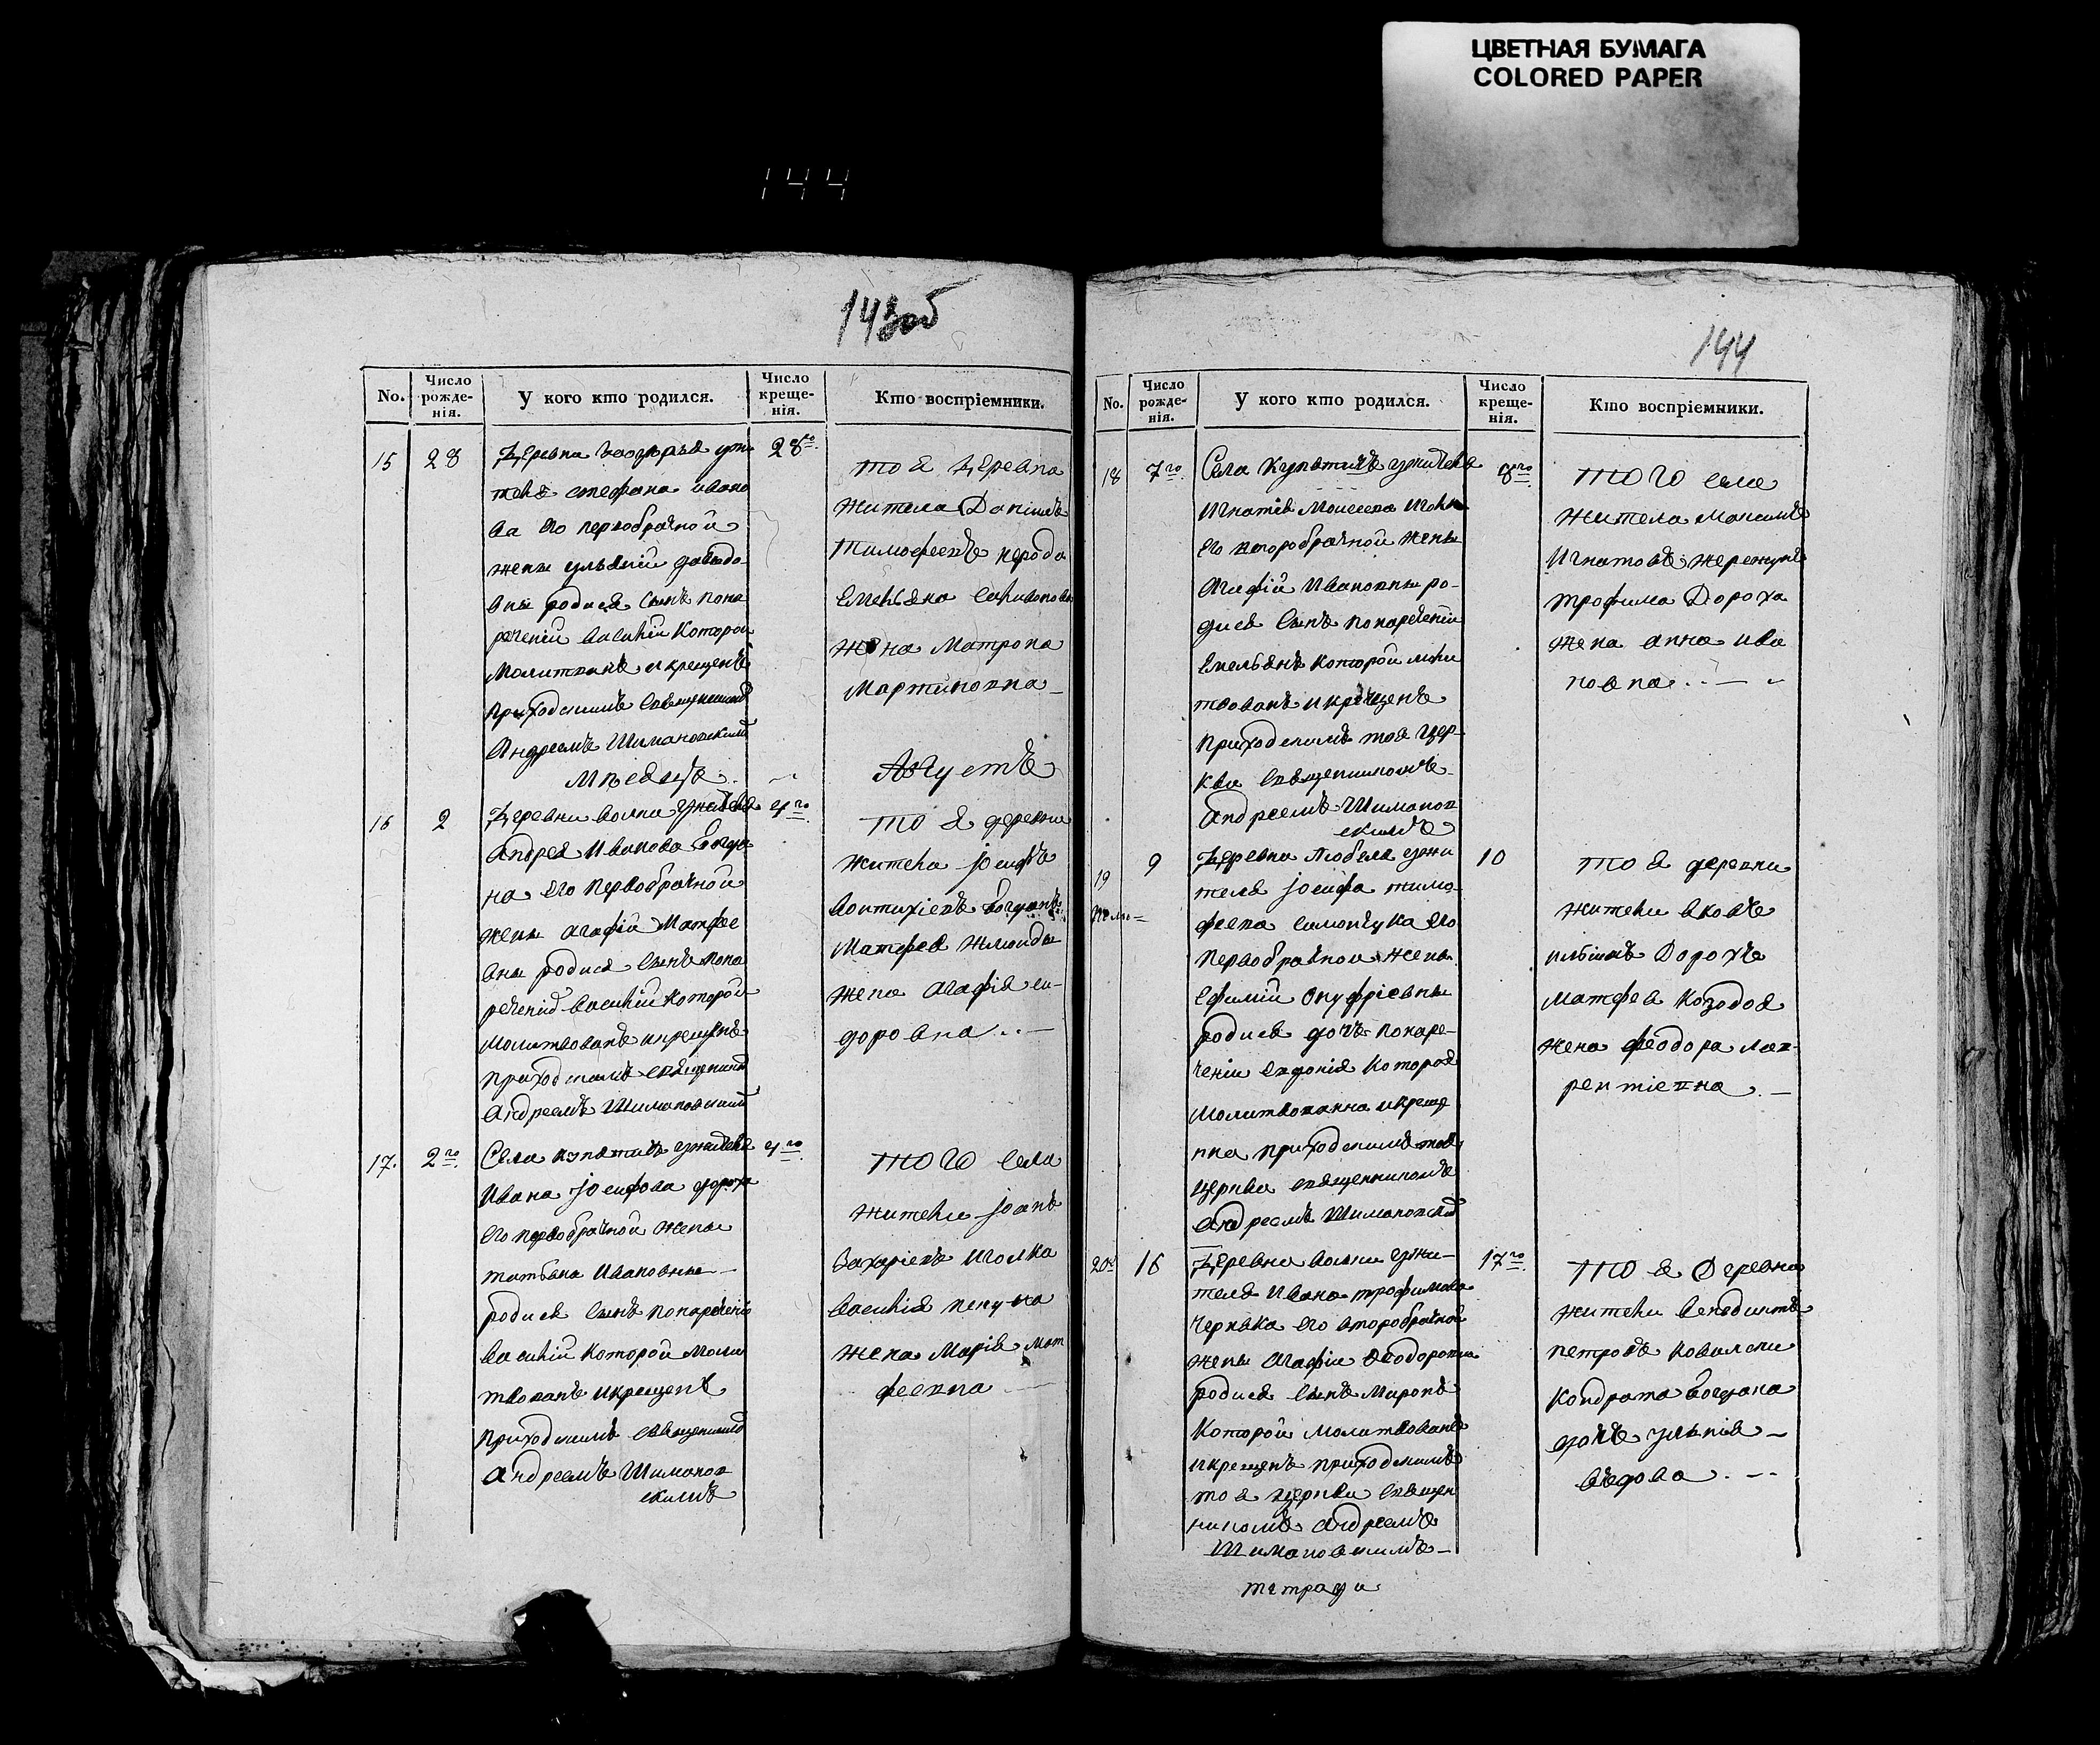 ЦВЕТНАЯ БУМАГА
COLORED PAPER
144
143об
No.
Число рожде-нія.
У кого кто родился.
Число креще-нія.
Кто воспріемники.
15
28
Деревни
теля стефана ивано
ва его первобрачной
жены ульяніи давыдо
вны родися сынъ пона
реченіи василій которой
Молитванъ и крещенъ
приходскимъ священником
Андреемъ Шимановским
28го
тоя деревни
жители Даніилъ
Тимофеевъ
Емельяна
жена Матрона
Мартиновна
Мѣсяцъ
Августъ
16
2
Деревни волки ужителя
Андрея Иванова Богда
на его первобрачной
жены агафіи Матфее
вны родися сынъ пона
реченіи василій которой
Молитвованъ и крещенъ
приходскимъ священникомъ
Андреемъ Шимановским
4го
тоя деревни
жители Іосифъ
Богданъ
Матфея
жена агафія си-
доровна
17.
2го
Села ужителя
Ивана Іосифова дороха
его первобрачной жены
татьяна Ивановны
родися сынъ понареченіи
василій которой моли
твованъ и крещенъ
приходскимъ священником
Андреемъ Шиманов
скимъ
4го
того села
жители Іоанъ
Захаріевъ иголка
василія
жена Марія мат
феевна
144
No.
Число рожде-нія.
У кого кто родился.
Число креще-нія.
Кто воспріемники.
18
7го
Села ужителя
Игнатія Моисеева
его второбрачной жены
Агафіи Ивановны ро-
дися сынъ понареченіи
Емельянъ которой моли
твованъ и крещенъ
приходскимъ тоя цер-
кви священникомъ
Андреемъ Шиманов
скимъ
8го
того села
жители Максимъ
Игнатовъ
трофима Дороха
жена анна ива
новна
19
9
Деревни ужи
теля Іосифа тимо-
феева симончука его
первобрачной жены
Ефиміи Онуфріевны
родися дочъ понаре-
ченіи евдокія которая
молитвованна и креще
нна приходскимъ тоя
церкви священникомъ
Андреемъ Шимановским
10
тоя деревни
жители
Дорохъ
матфея козодоя
жена феодора лав-
рентіевна
20
16
Деревни волки ужи-
теля Ивана трофимова
его второбрачной
жены агафіи Феодоровны
родися сынъ Миронъ
Которой Молитвованъ
и крещенъ приходскимъ
тоя церкви священ
никомъ Андреемъ
Шимановскимъ
тетради
17го
тоя Деревни
жители венедиктъ
петровъ
кондрата богдана
дочъ
вдова